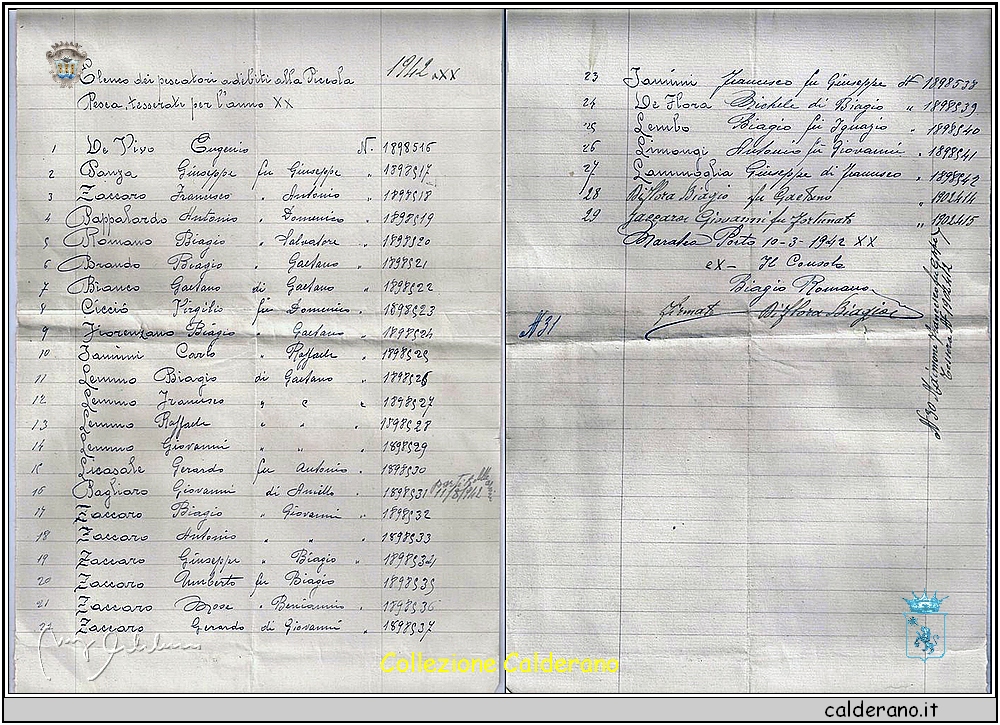 Elenco dei pescatori adibiti alla Piccola
1942 XX
Pesca tesserati per l'anno XX
1 De Vivo Eugenio N. 1898516
2 Panza Giuseppe fu Giuseppe " 1898517
3 Zaccaro Francesco " Antonio " 1898518
4 Pappalardo Antonio " Domenico " 1898519
5 Romano Biagio " Salvatore " 1898520
6 Brando Biagio " Gaetano " 1898521
7 Bianco Gaetano di Gaetano " 1898522
8 Cicciò Virgilio fu Domenico " 1898523
9 Fiorenzano Biagio " Gaetano " 1898524
10 Iannini Carlo " Raffaele " 1898525
11 Lemmo Biagio di Gaetano " 1898526
12 Lemmo Francesco " " " 1898527
13 Lemmo Raffaele " " 1898528
14 Lemmo Giovanni " " 1898529
15 Licasale Gerardo fu Antonio " 1898530
16 Pagliaro Giovanni di " 1898531 11/8/942
17 Zaccaro Biagio " Giovanni " 1898532
18 Zaccaro Antonio " " " 1898533
19 Zaccaro Giuseppe " Biagio " 1898534
20 Zaccaro Umberto fu Biagio 1898535
21 Zaccaro Mose " Beniamino " 1898536
22 Zaccaro Gerardo di Giovanni " 1898537
23 Iannini Francesco fu Giuseppe N 1898538
24 De Flora Michele di Biagio " 1898539
25 Lembo Biagio fu Ignazio " 1898540
26 Limongi Antonio fu Giovanni " 1898541
27 Lammoglia Giuseppe di Francesco " 1898542
28 Di Flora Biagio fu Gaetano " 1902414
29 Zaccaro Giovanni fu Fortunato " 1902415
Maratea Porto 10-3-1942 XX
ex - Il Console
Biagio Romano
Firmato Di Flora Biagio
N 31
N 30 Francesco fu
Tessera N
Collezione Calderano
calderano.it